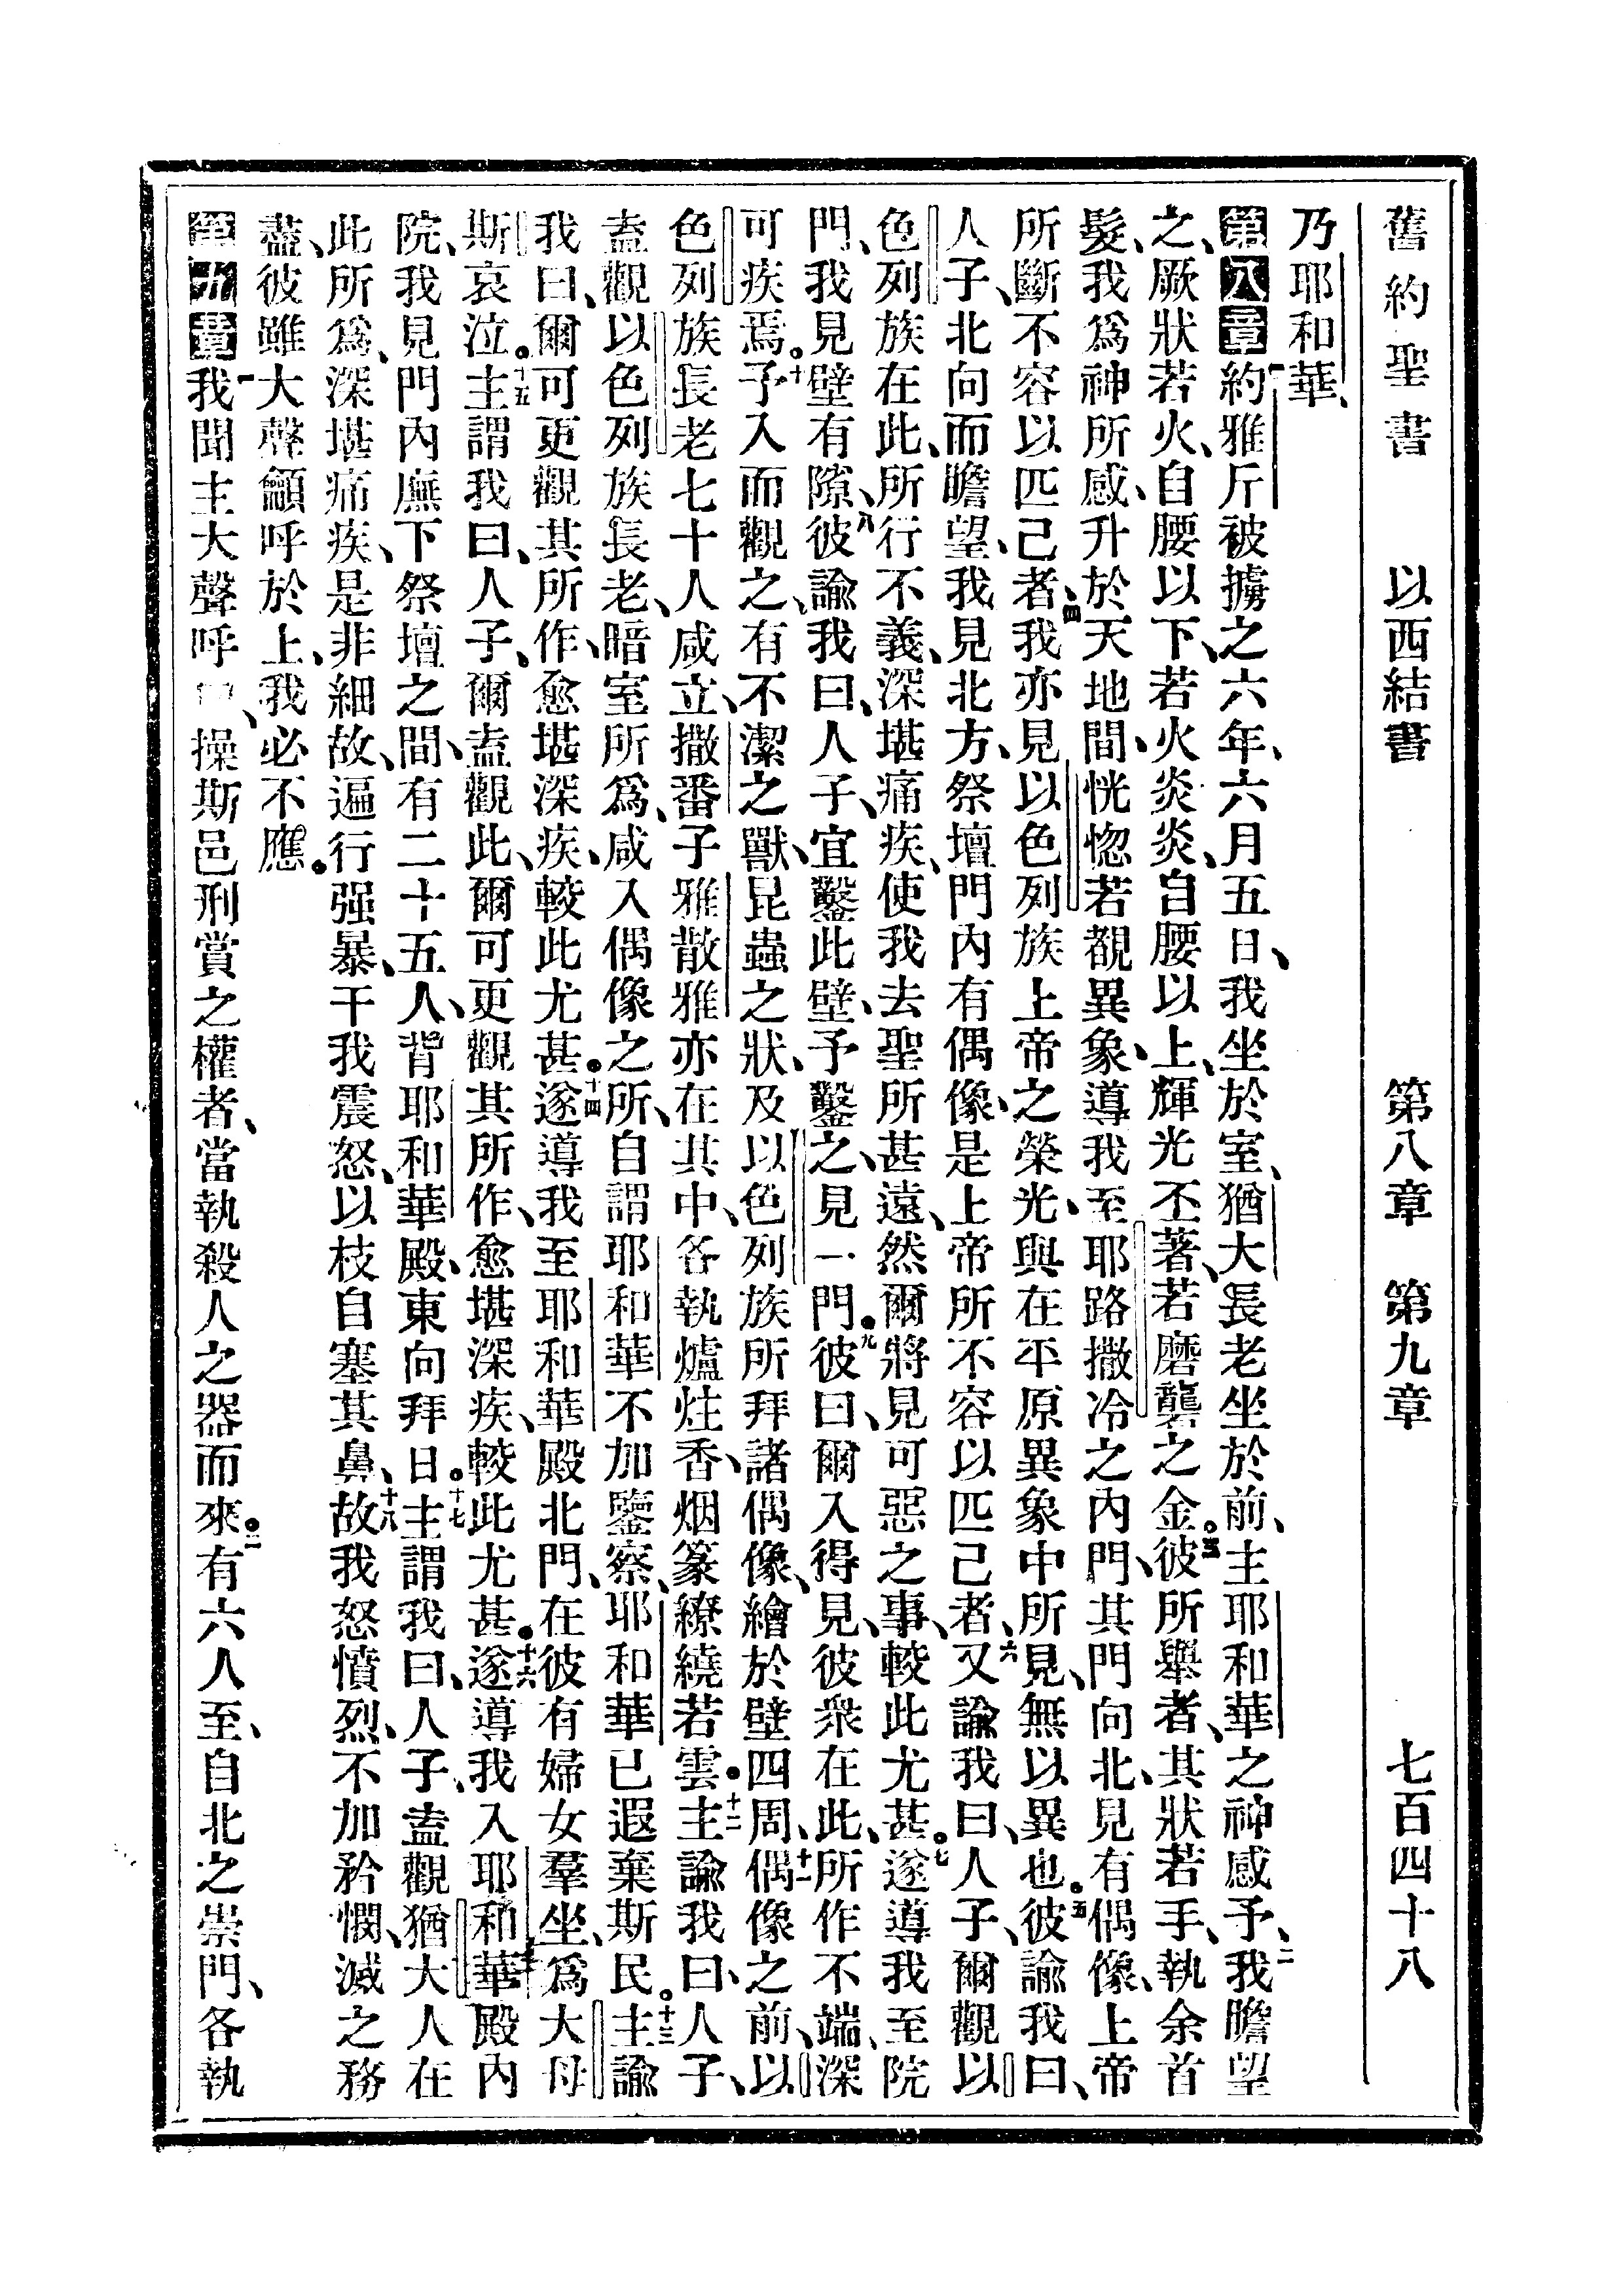 舊約聖書 以西結書 第八章 第九章 七百四十八
乃耶和華、
第八章 一約雅斤被擄之六年、六月五日、我坐於室、猶大長老坐於前、主耶和華之神感予、二我瞻望
之、厥狀若火、自腰以下、若火炎炎、自腰以上、輝光丕著、若磨礱之金。三彼所舉者、其狀若手、執余首
髮、我爲神所感、升於天地間、恍惚若覩異象、導我至耶路撒冷之內門、其門向北、見有偶像、上帝
所斷不容以匹己者、四我亦見以色列族上帝之榮光、與在平原異象中所見、無以異也。五彼諭我曰、
人子、北向而瞻望、我見北方、祭壇門內有偶像、是上帝所不容以匹己者、六又諭我曰、人子、爾觀以
色列族在此、所行不義、深堪痛疾、使我去聖所甚遠、然爾將見可惡之事、較此尤甚。七遂導我至院
門、我見壁有隙、八彼諭我曰、人子、宜鑿此壁、予鑿之、見一門。九彼曰、爾入得見、彼衆在此、所作不端、深
可疾焉。十予入而觀之、有不潔之獸、昆蟲之狀、及以色列族所拜諸偶像、繪於壁四周、十一偶像之前、以
色列族長老七十人咸立、撒番子雅散雅亦在其中、各執爐炷香、烟篆繚繞若雲。十二主諭我曰、人子、
盍觀以色列族長老、暗室所爲、咸入偶像之所、自謂耶和華不加鑒察、耶和華已遐棄斯民。十三主諭
我曰、爾可更觀其所作、愈堪深疾、較此尤甚。十四遂導我至耶和華殿北門、在彼有婦女羣坐、爲大母
斯哀泣。十五主謂我曰、人子、爾盍觀此、爾可更觀其所作、愈堪深疾、較此尤甚。十六遂導我入耶和華殿內
院、我見門內廡下祭壇之間、有二十五人、背耶和華殿、東向拜日。十七主謂我曰、人子、盍觀猶大人在
此所爲、深堪痛疾、是非細故、遍行强暴、干我震怒、以枝自塞其鼻、十八故我怒憤烈、不加矜憫、滅之務
盡、彼雖大聲籲呼於上、我必不應。
第九章 一我聞主大聲呼、操斯邑刑賞之權者、當執殺人之器而來。二有六人至、自北之崇門、各執